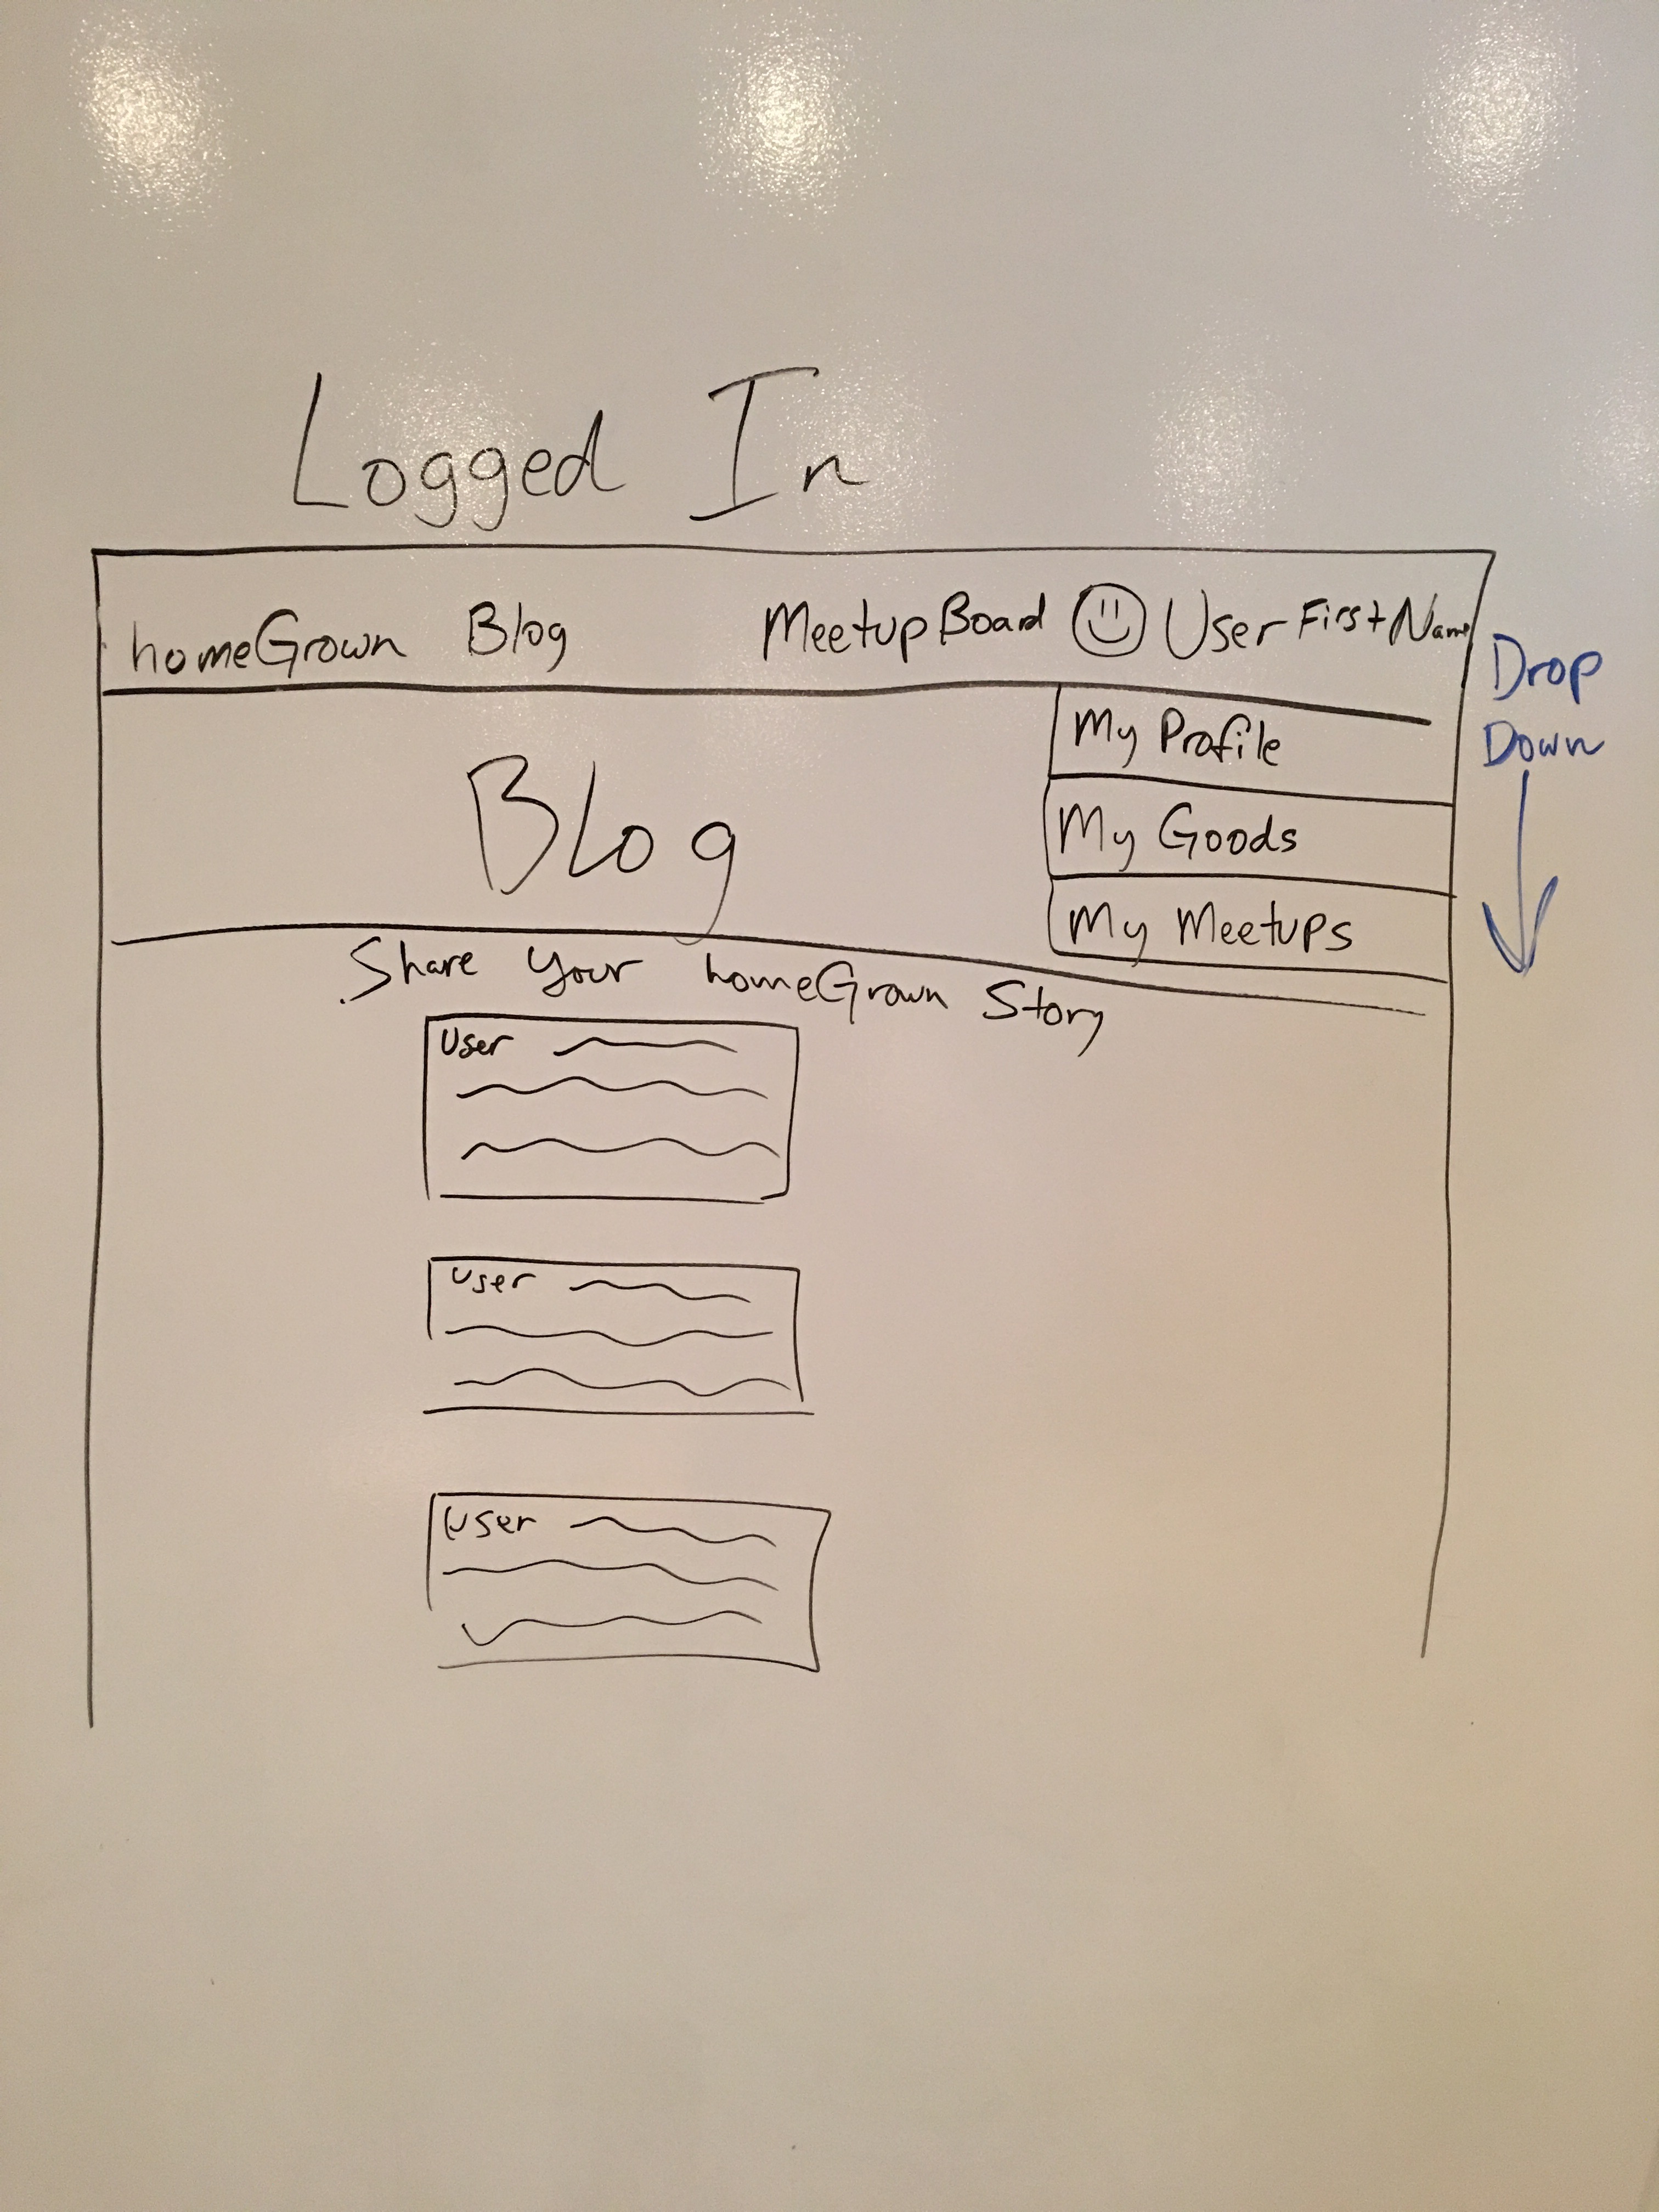 Logged In
homeGrown Blog MeetupBoard User FirstName
Drop
Down
My Profile
My Goods
My Meetups
Blog
Share Your homeGrown Story
User
User
User